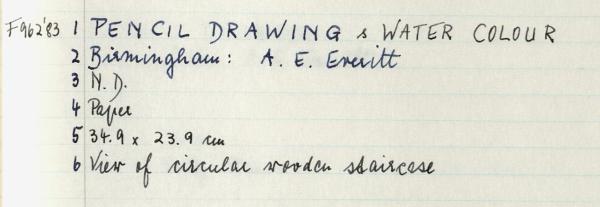 F962'83 1 PENCIL DRAWING & WATER COLOUR
2 Birmingham: A. E. Everitt
3 N.D.
4 Paper
5 34.9 x 23.9 cm
6 View of circular wooden staircase